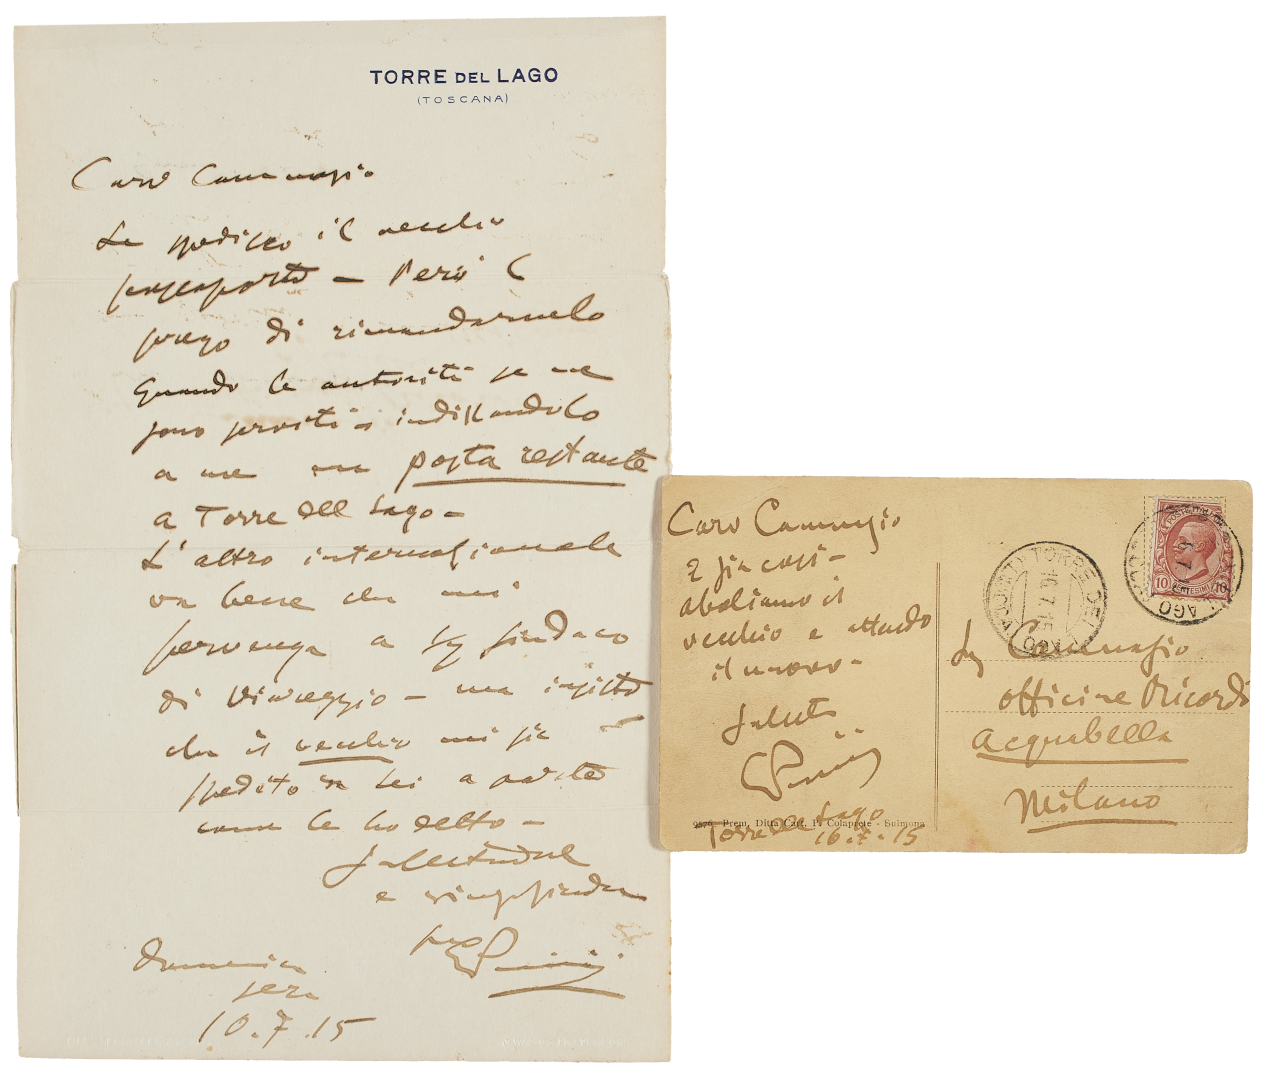 TORRE DEL LAGO
(TOSCANA)
Caro Cammagio
Le spedisco il vecchio
passaporto – Però la
prego di rimandarmelo
quando le autorità se ne
sono servite – indirizzandolo
a me posta restante
a Torre del Lago –
L'altro internazionale
va bene che mi
pervenga a Sg sindaco
di Viareggio – ma insisto
che il vecchio mi sia
spedito da Lei a parte
come le ho detto –
Salutandola
e ringraziandola
suo GPuccini
domenica
sera
10.7.15
Caro Cammagio
E sia così –
aboliamo il
vecchio e attendo
il nuovo –
Saluti
GPuccini
Torre del Lago
16.7.15
9576 - Prem. Ditta Cart. P. Colaprete - Sulmona
TORRE DEL LAGO
16.7.15
POSTE ITALIANE
10 CENTESIMI 10
LAGO
Sg Cammagio
officine Ricordi
Acquabella
Milano